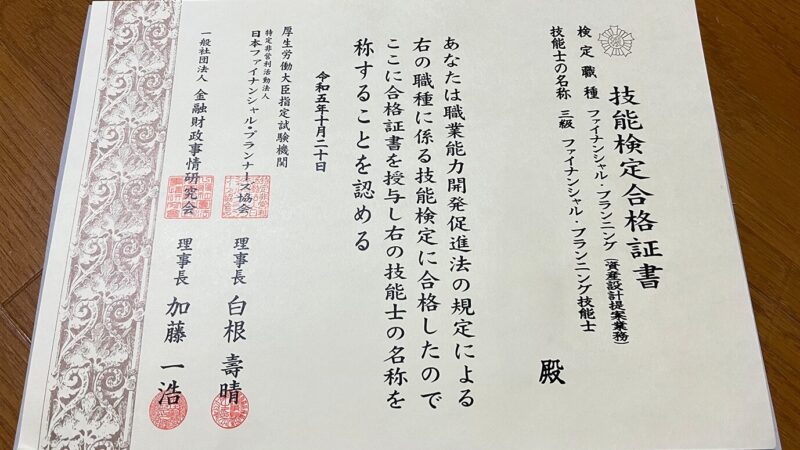 技能検定合格証書
検定職種 ファイナンシャル・プランニング（資産設計提案業務）
技能士の名称 三級 ファイナンシャル・プランニング技能士
殿
あなたは職業能力開発促進法の規定による
右の職種に係る技能検定に合格したので
ここに合格証書を授与し右の技能士の名称を
称することを認める
令和五年十月二十日
厚生労働大臣指定試験機関
特定非営利活動法人
日本ファイナンシャル・プランナーズ協会
理事長 白根壽晴
一般社団法人 金融財政事情研究会
理事長 加藤一浩